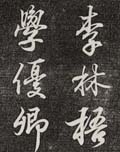 李林梧
學優卿